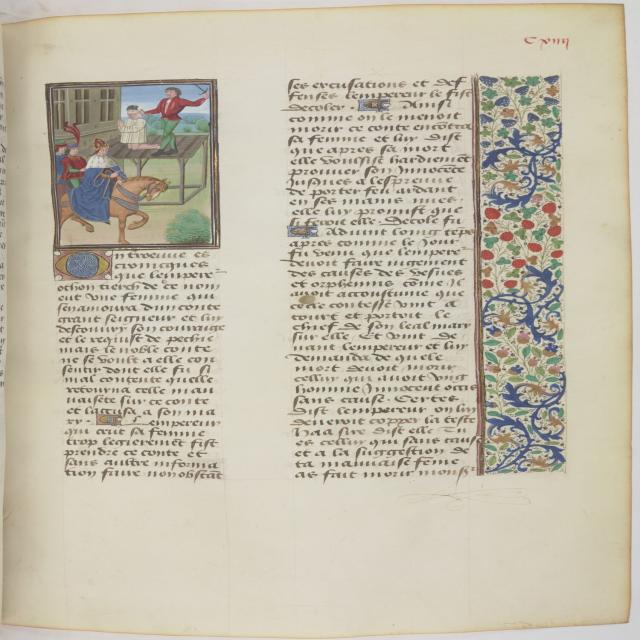 C xiiii
On treuve es
croniques
que l'empere
othon tierch de ce nom
eut une femme qui
senamoura d'un conte
grant seigneur et luy
descouvry son couraige
et le requist de pechie
mais le noble conte
ne se voult a elle con
sentir dont elle fu si
mal contente quelle
retourna celle mau
vaisete sur ce conte
et laccusa a son ma
ry. Lempereur
qui creut sa femme
trop legierement fist
prendre ce conte et
sans aultre informa
tion faire non obstat
ses excusations et def
fenses lempereur le fist
decoler. Ainsi
comme on le menoit
morir ce conte encōtra
sa femme et luy dist
que apres sa mort
elle voulsist hardiemēt
prouver son Innocēce
Jusques a lespreuve
de porter feu ardant
en ses mains nues.
elle luy promist que
si feroit elle. Decole fu
Advint long tēps
apres comme le Jour
fu venu que lempere
devoit faire iugement
des causes des vesves
et orphenins cōme Il
avoit acoustume que
ceste contesse vint a
court et portoit le
chief de son leal mary
sur elle Et vint de
vant lempereur et luy
demanda de quele
mort devoit morir
celluy qui avoit ung
homme Innocent occis
sans cause. Certes
dist lempereur on luy
devroit copper la teste
Haa sire dist elle Tu
es celluy qui sans cause
et a la suggestion de
ta mauvaise feme
as fait morir monsr